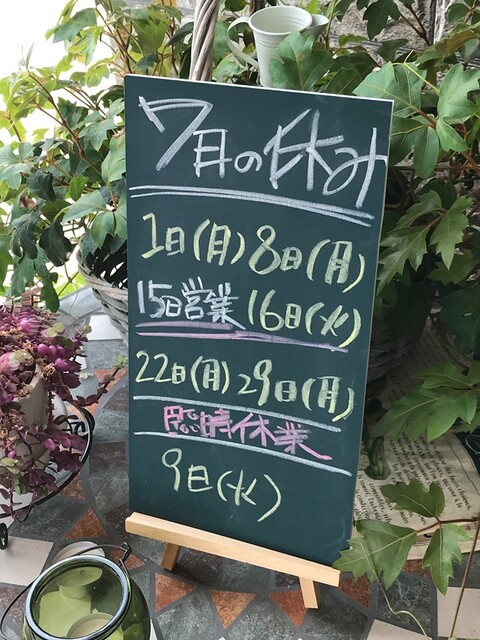 7月の休み
1日(月)8日(月)
15日営業16日(火)
22日(月)29日(月)
臨時休業
9日(火)